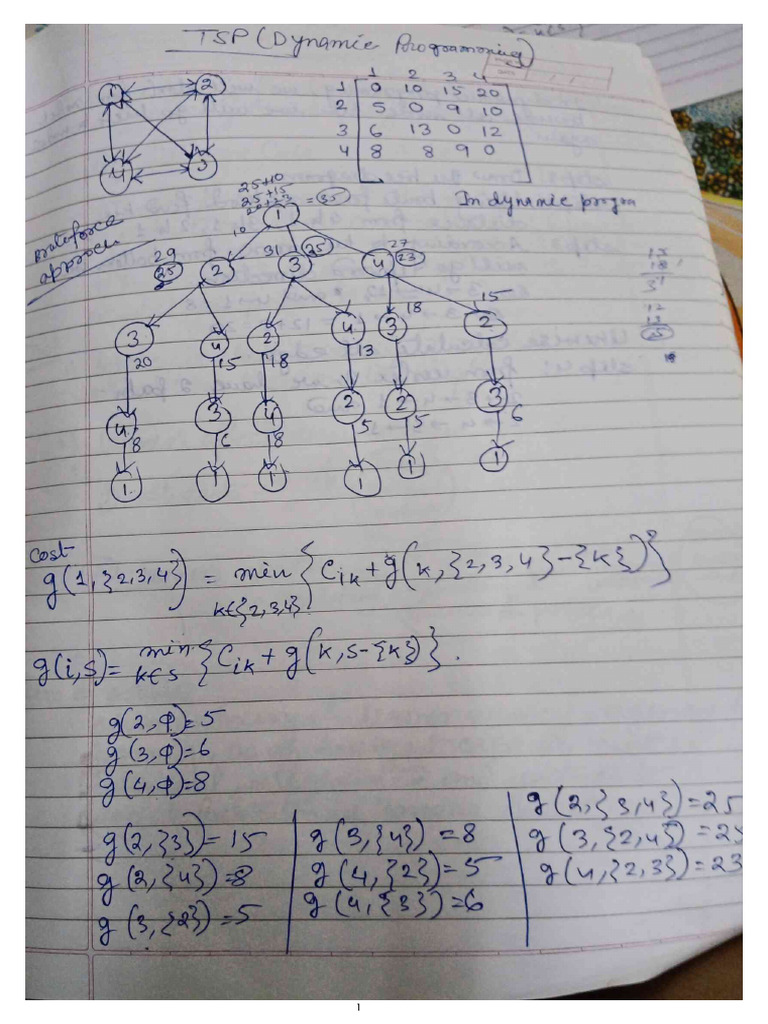 TSP (Dynamic Programming)
1 2 3 4
1 0 10 15 20
2 5 0 9 10
3 6 13 0 12
4 8 8 9 0
1 2
4 3
25+10
25+15
= 35
In dynamic progra
bruteforce
approach
1
10
29 31 25 27 23
25 2 3 4
18 15
3 4 2 4 3 2
20 15 18 13
4 3 4 2 2 3
8 6 8 5 5 6
1 1 1 1 1 1
12
13
25
cost
g(1,{2,3,4}) = min {Cik + g(k,{2,3,4}-{k})}
k∈{2,3,4}
g(i,s) = min {Cik + g(k,s-{k})}.
k∈s
g(2,ϕ)=5
g(3,ϕ)=6
g(4,ϕ)=8
g(2,{3})=15
g(2,{4})=8
g(3,{2})=5
g(3,{4})=8
g(4,{2})=5
g(4,{3})=6
g(2,{3,4})=25
g(3,{2,4})=25
g(4,{2,3})=23
1